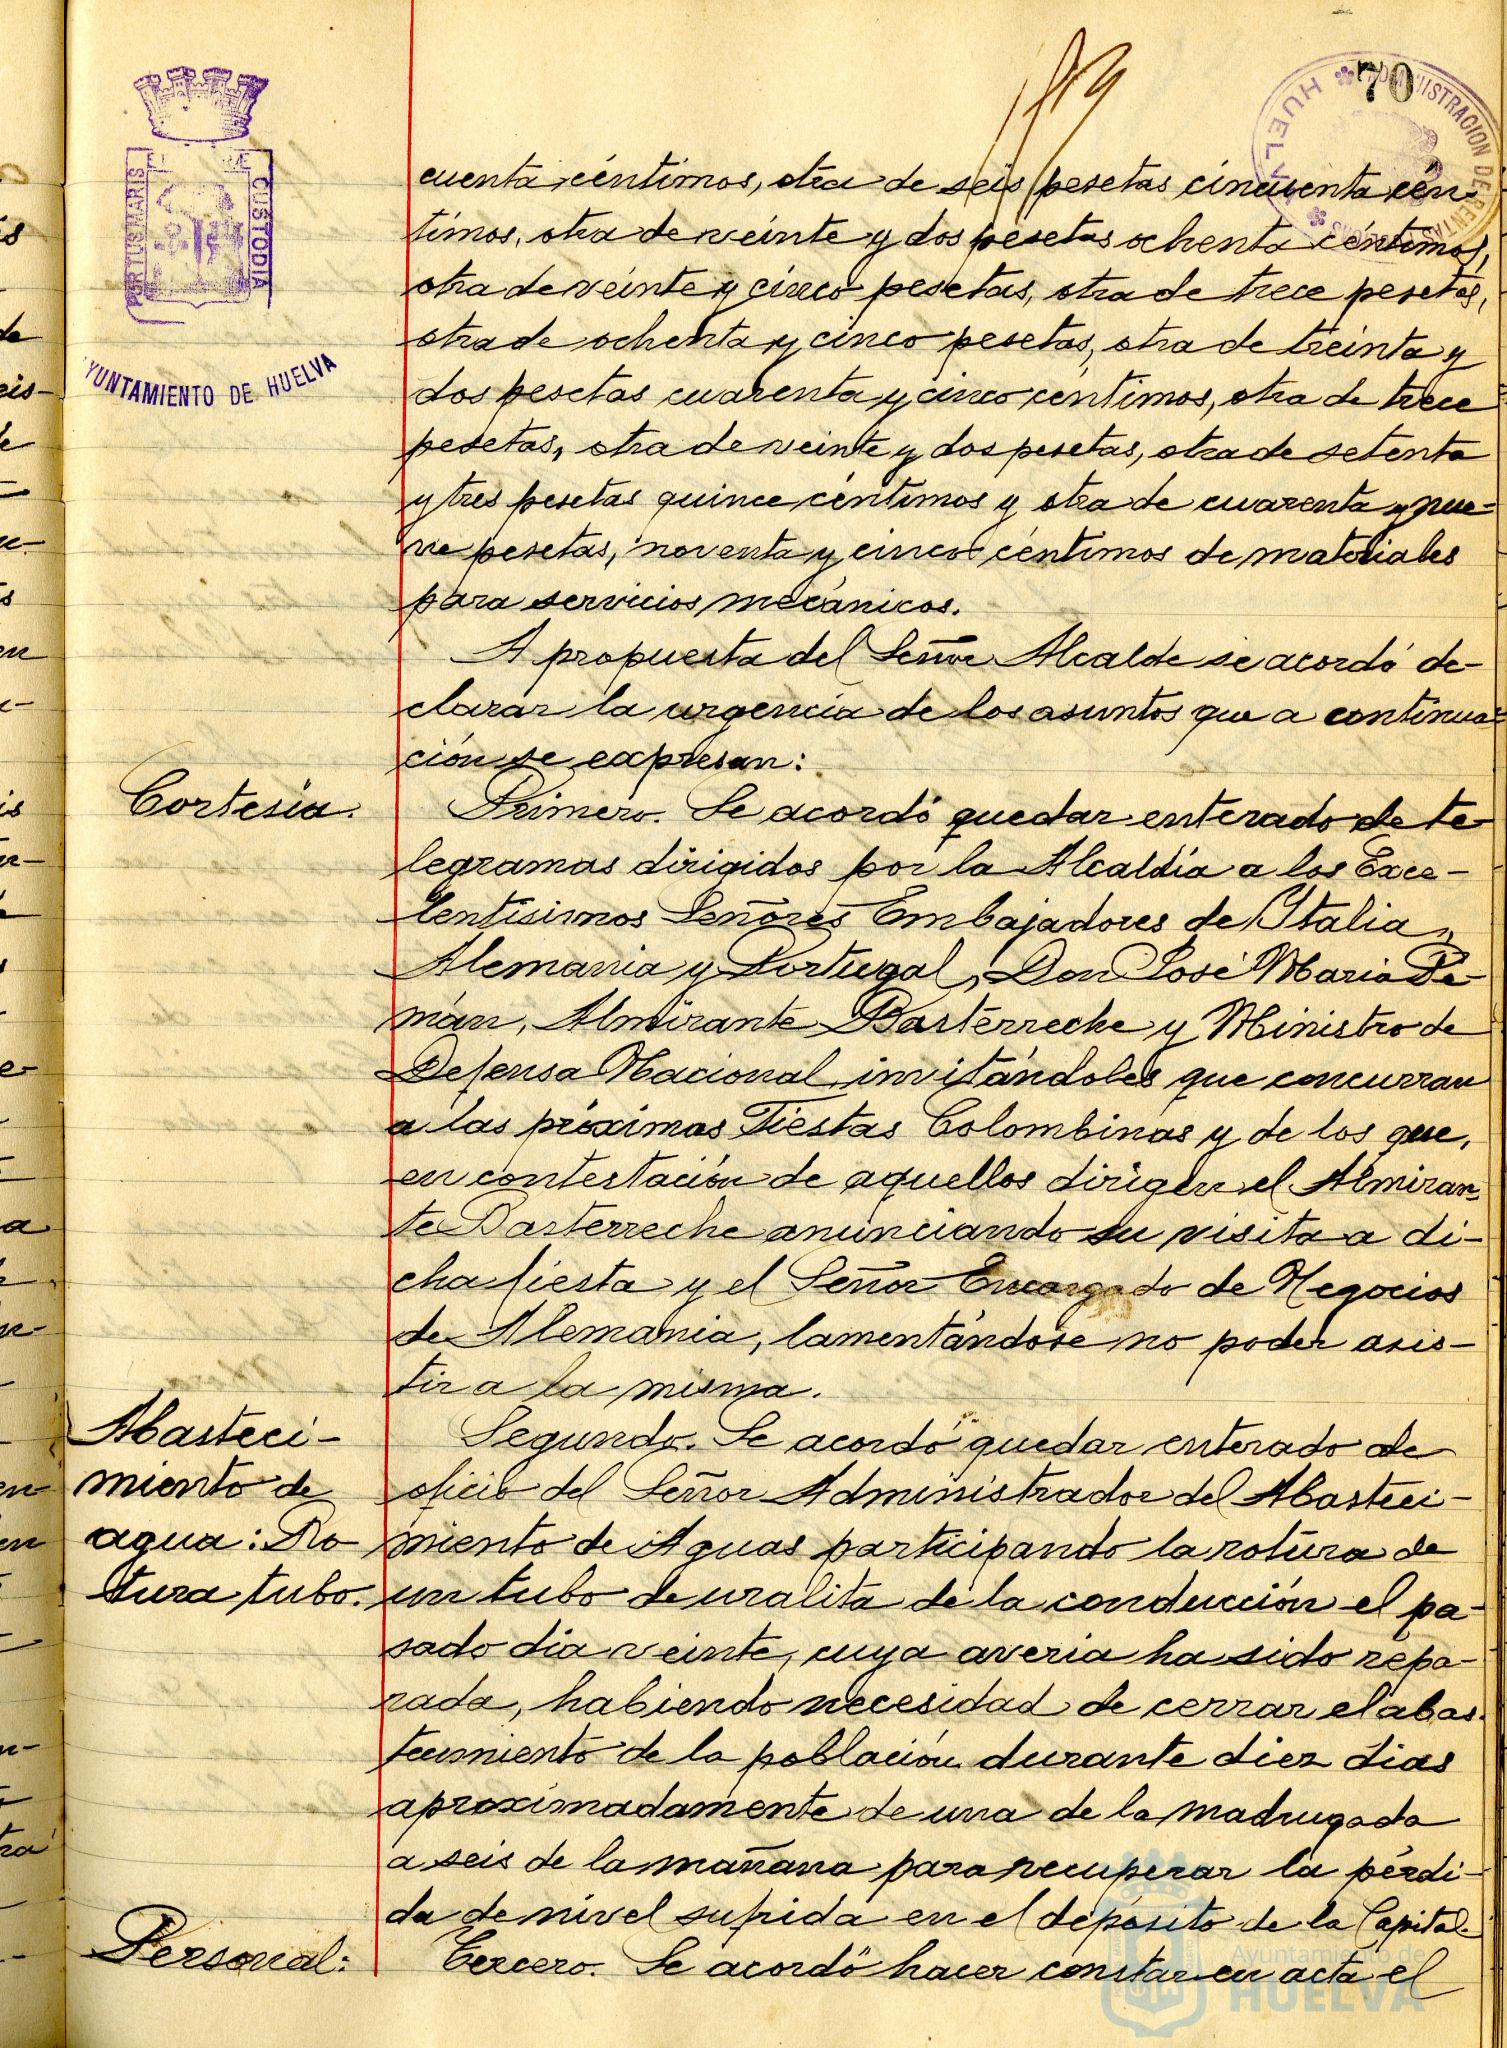 70
PORTUS MARIS
CUSTODIA
AYUNTAMIENTO DE HUELVA
ADMINISTRACION DE RENTAS
HUELVA
cuenta céntimos, otra de seis pesetas cincuenta cén-
timos, otra de veinte y dos pesetas ochenta céntimos,
otra de veinte y cinco pesetas, otra de trece pesetas,
otra de ochenta y cinco pesetas, otra de treinta y
dos pesetas cuarenta y cinco céntimos, otra de trece
pesetas, otra de veinte y dos pesetas, otra de setenta
y tres pesetas quince céntimos y otra de cuarenta y nue-
ve pesetas, noventa y cinco céntimos de materiales
para servicios mecánicos.
A propuesta del Señor Alcalde se acordó de-
clarar la urgencia de los asuntos que a continua-
ción se expresan:
Cortesía.
Primero. Se acordó quedar enterado de te-
legramas dirigidos por la Alcaldía a los Exce-
lentísimos Señores Embajadores de Italia,
Alemania y Portugal, Don José María Pe-
mán, Almirante Basterreche y Ministro de
Defensa Nacional invitándoles que concurran
a las próximas Fiestas Colombinas y de los que,
en contestación de aquellos dirigen el Almiran-
te Basterreche anunciando su visita a di-
cha fiesta y el Señor Encargado de Negocios
de Alemania, lamentándose no poder asis-
tir a la misma.
Abasteci-
miento de
agua: Ro-
tura tubo.
Segundo. Se acordó quedar enterado de
oficio del Señor Administrador del Abasteci-
miento de Aguas participando la rotura de
un tubo de uralita de la conducción el pa-
sado día veinte, cuya averia ha sido repa-
rada, habiendo necesidad de cerrar el abas-
tecimiento de la población durante diez dias
aproximadamente de una de la madrugada
a seis de la mañana para recuperar la pérdi-
da de nivel sufrida en el depósito de la Capital.
Personal:
Tercero. Se acordó hacer constar en acta el
Ayuntamiento de
HUELVA